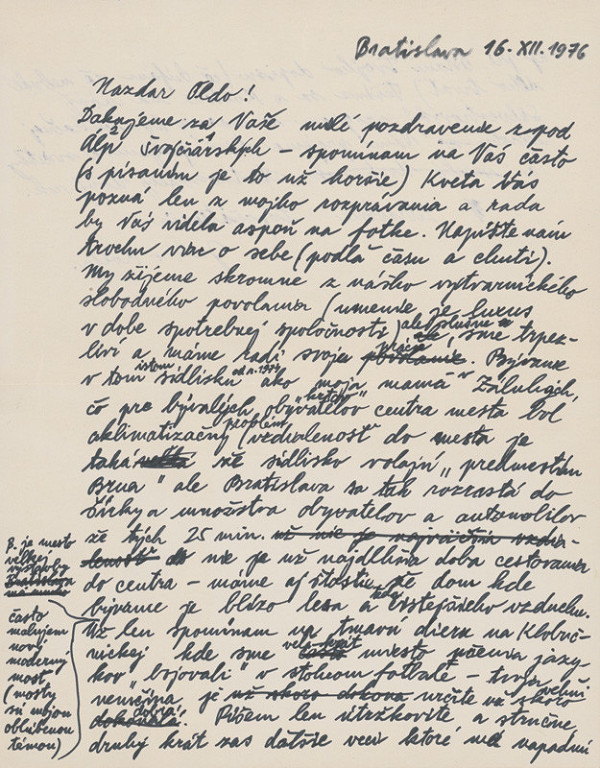 Bratislava 16. XII. 1976
Nazdar Oldo!
Ďakujeme za Vaše milé pozdravenie zpod
Álp Švajčiarských – spomínam na Vás často
(s písaním je to už horšie) Kveta Vás
pozná len z mojho rozprávania a rada
by Vás videla aspoň na fotke. Napíšte nám
trochu viac o sebe (podľa času a chuti).
My žijeme skromne z nášho výtvarnického
slobodného povolania (umenie je luxus
v dobe spotrebnej spoločnosti) ale sme trpez-
liví a máme radi svoju prácu. Bývame
v tom istom sídlisku od r. 1974 ako moja mamá v Záluhách,
čo pre bývalých obyvateľov centra mesta bol
aklimatizačný problém (vzdialenosť do mesta je
taká že sídlisko volajú „predmestím
Brna" ale Bratislava sa tak rozrastá do
šírky a množstva obyvateľov a automobilov
že tých 25 min. už nie je najväčšia vzdia-
lenosť nie je už najdlhšia doba cestovania
do centra – máme aj šťastie že dom kde
bývame je blízo lesa a čistejšieho vzduchu.
Už len spomínam na tmavú dieru na Klobúč-
níckej kde sme veľakrát miesto učenia jazy-
kov „bojovali" v stolnom futbale – tvoja
nemčina je už skoro dokona určite už skoro veľmi
dobrá. Píšem len útržkovite a stručne,
druhý krát zas ďalšie veci ktoré mi napadnú
B. je mesto
veľkej
výstavby
Bratislava
často
malujem
nový
moderný
most
(mosty
sú mojou
obľúbenou
témou)